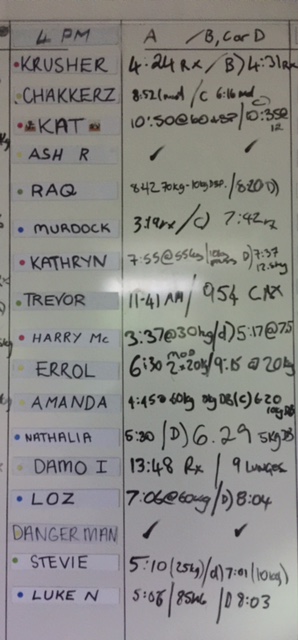 4 PM A / B, C or D
KRUSHER 4:24 Rx / B) 4:31 Rx
CHAKKERZ 8:52 / C 6:16 mod
KAT 10:50@60
ASH R ✓ ✓
RAQ 8:42 70kg - 10kg / 8:20 D)
MURDOCK 3:19 rx / C) 7:42 rx
KATHRYN 7:55@55kg D) 7:37 12.5kg
TREVOR 11-41 / 954 C
HARRY Mc 3:37@30kg / d) 5:17@7.5
ERROL 6:30 mod 20kg / 9:15 @ 20kg
AMANDA DB (C) 6:20 10kg DB
NATHALIA 5:30 / D) 6.29 5kg DB
DAMO I 13:48 Rx / 9 LUNGES
LOZ 7:06@60kg / D) 8:04
DANGERMAN ✓ ✓
STEVIE 5:10 (25kg) / d) 7:01 (10kg)
LUKE N 5:06 / 85kg / D 8:03